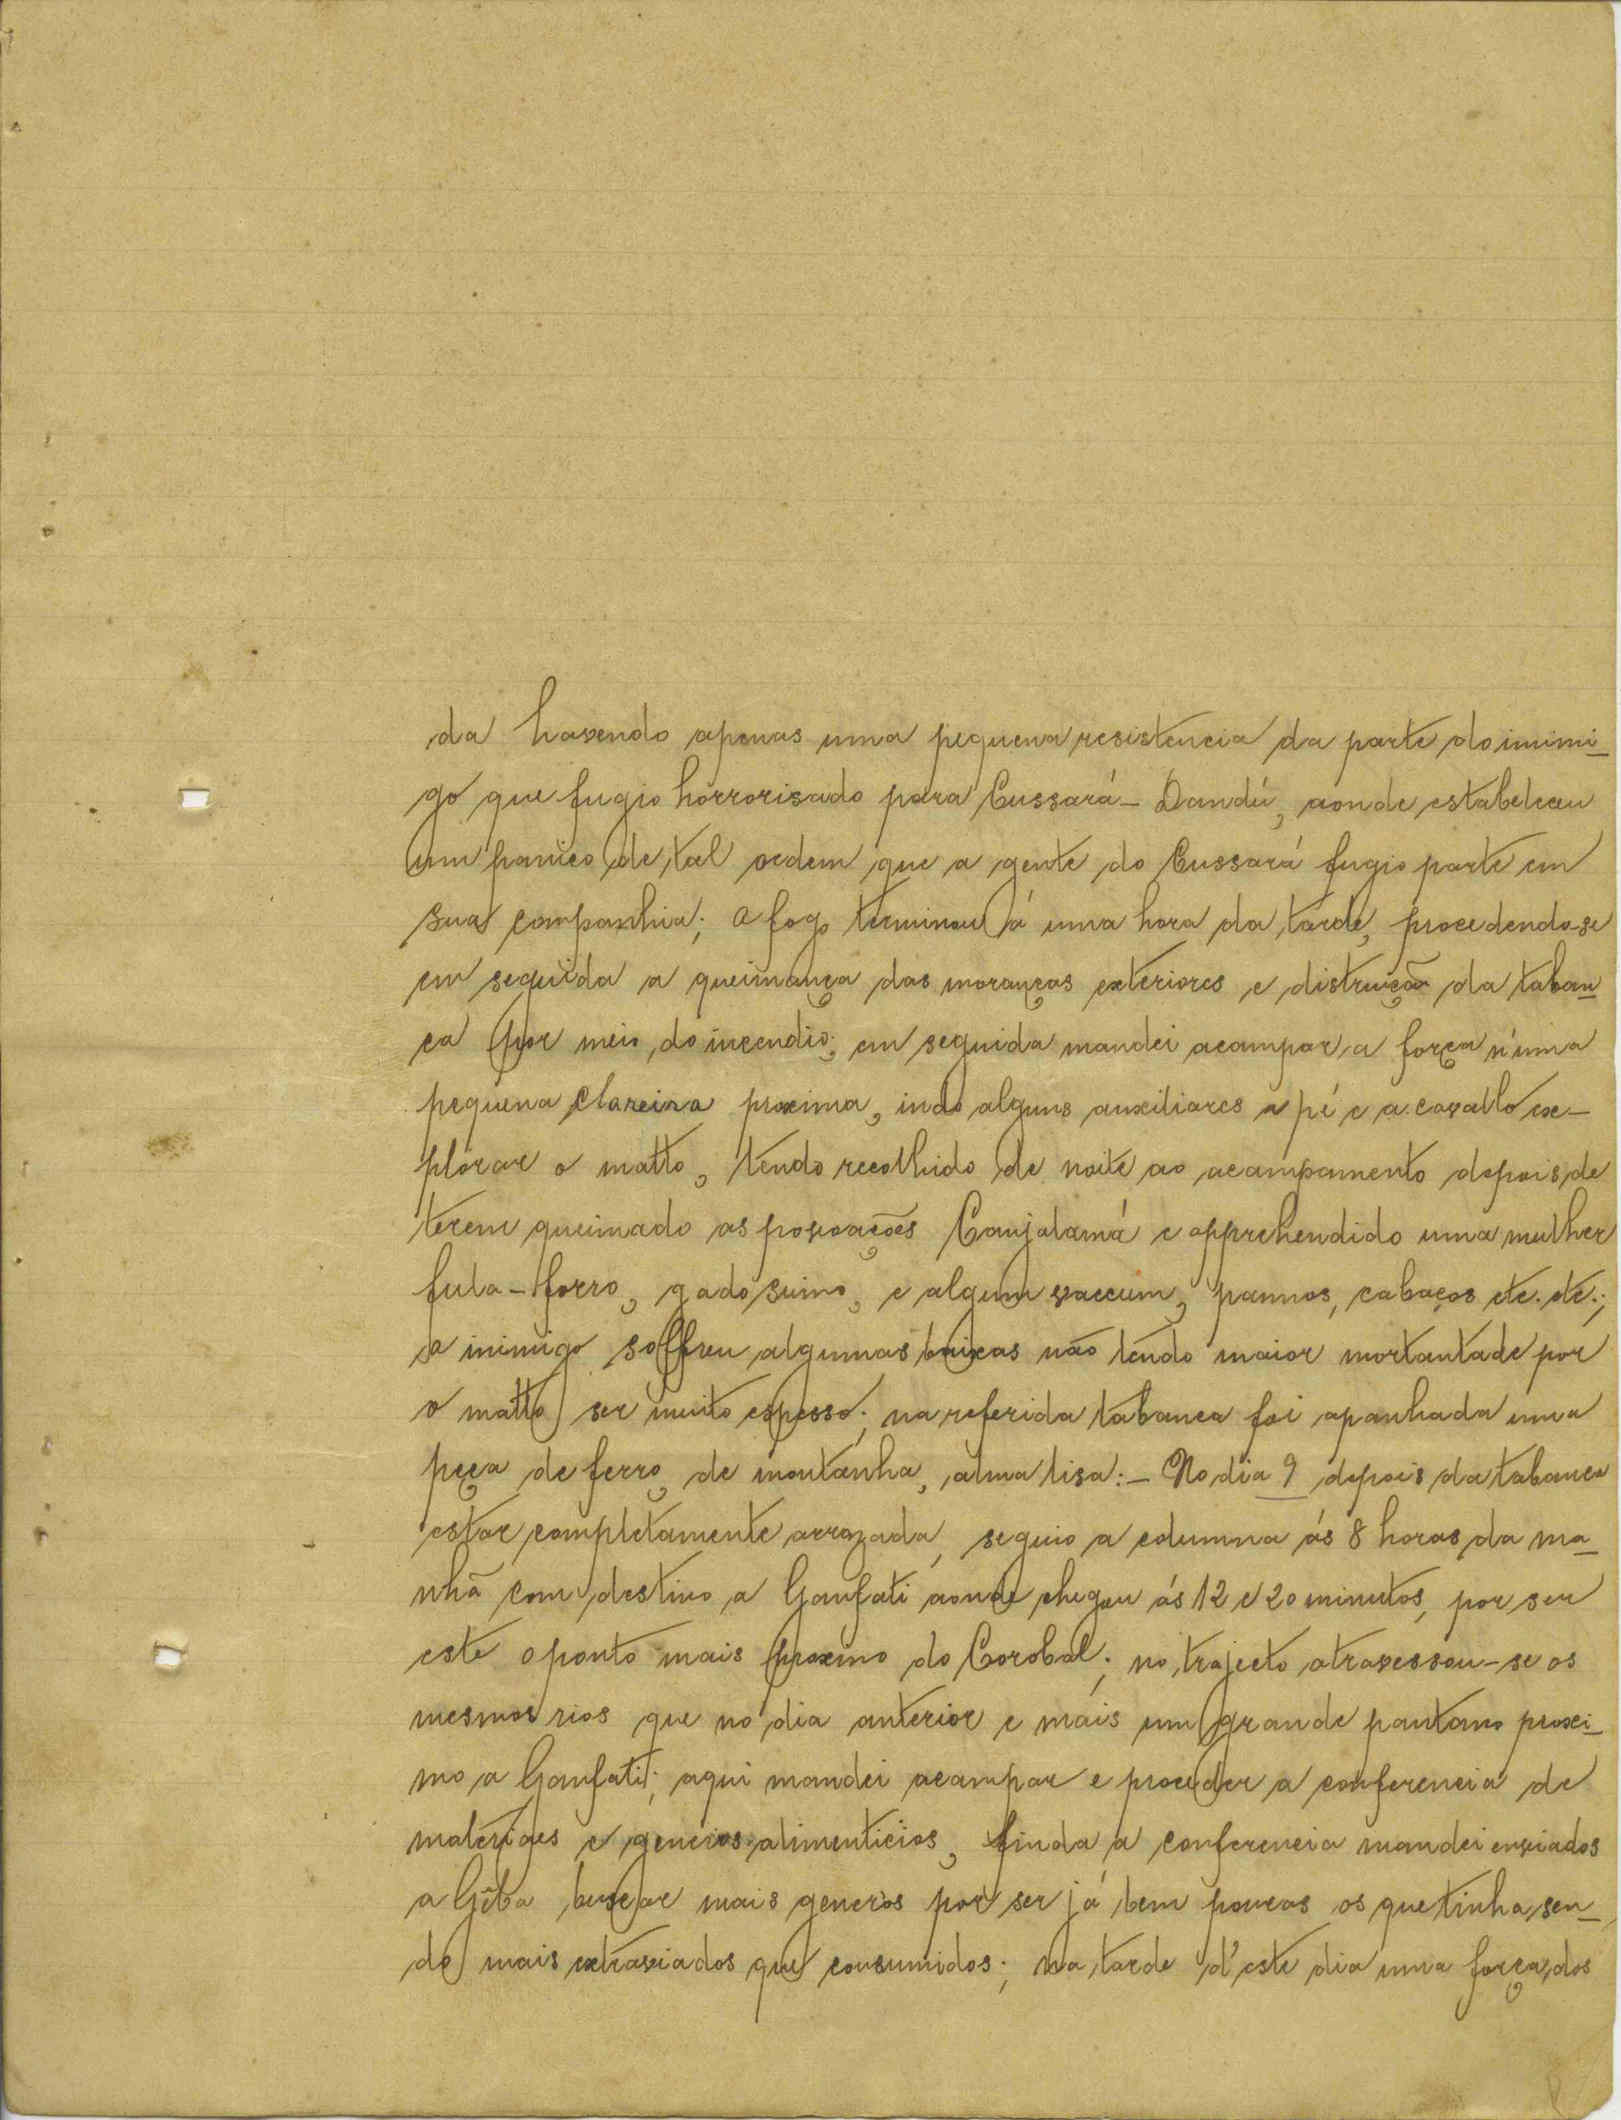 da havendo apenas uma pequena resistencia da parte do inimi-
go que fugio horrorisado para Cussará-Dandú, aonde estabeleceu
um panico de tal ordem que a gente do Cussará fugio parte em
sua companhia; o fogo terminou á uma hora da tarde, procedendo-se
em seguida a queimança das moranças exteriores e distruição da taban-
ca por meio do incendio; em seguida mandei acampar a força n'uma
pequena clareira proxima, indo alguns auxiliares a pé e a cavallo ex-
plorar o matto, tendo recolhido de noite ao acampamento depois de
terem queimado as povoações Canjalamá e apprehendido uma mulher
fula-forro, gado suino, e algum vaccum, pannos, cabaços etc. etc.;
o inimigo soffreu algumas baixas não tendo maior mortantade por
o matto ser muito espesso; na referida tabanca foi apanhada uma
peça de ferro de montanha, alma lisa:- No dia 9 depois da tabanca
estar completamente arrazada, seguio a columna ás 8 horas da ma-
nhã com destino a Ganfati aonde chegou ás 12 e 20 minutos, por ser
este o ponto mais proximo do Corobal; no trajecto atravessou-se os
mesmos rios que no dia anterior e mais um grande pantano proxi-
mo a Ganfati; aqui mandei acampar e proceder a conferencia de
materiaes e generos alimenticios, finda a conferencia mandei enviados
a Gêba buscar mais generos por ser já bem poucos os que tinha, sen-
do mais extraviados que consumidos; na tarde d'este dia uma força dos